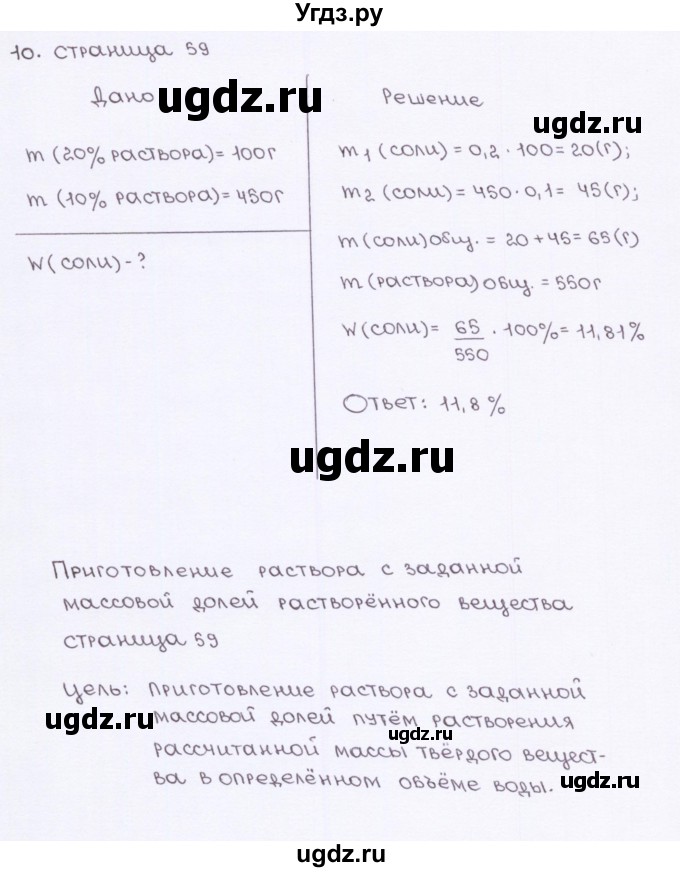 Угдз.ру
10. страница 59
Дано
ugdz.ru
Решение
ugdz.ru
m (20% раствора)= 100г
m (10% раствора)= 450г
W(соли)-?
m1(соли)=0,2·100=20(г);
m2 (соли)=450·0,1= 45(г);
m(соли)общ.=20+45=65(г)
m(раствора)общ.=550г
W(соли)= 65/550 ·100%=11,81%
Ответ: 11,8%
ugdz.ru
Приготовление раствора с заданной
массовой долей растворённого вещества
страница 59
Цель: приготовление раствора с заданной
ugdz.ru
массовой долей путём растворения
ugdz.ru
рассчитанной массы твёрдого вещест-
ва в определённом объёме воды.
ugdz.ru
ugdz.ru